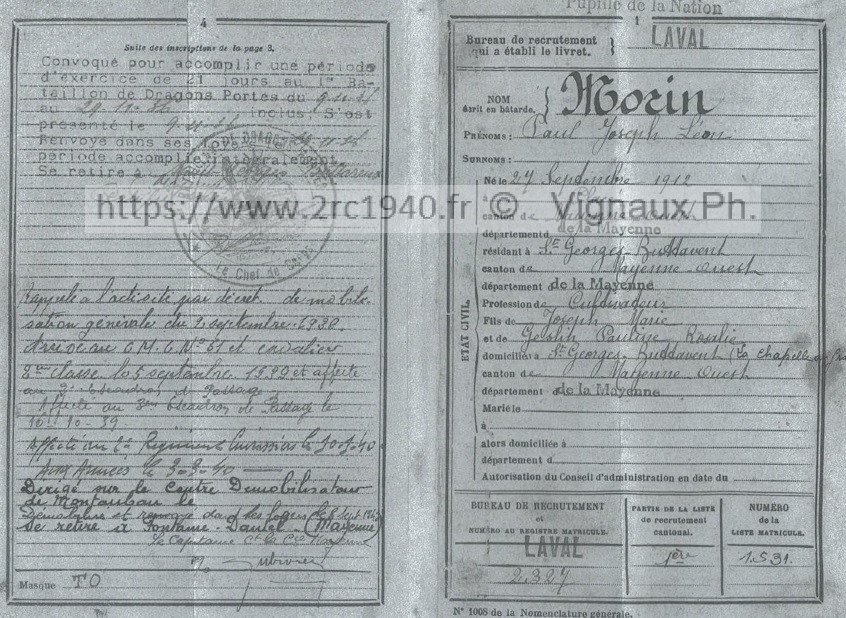 4
Suite des inscriptions de la page 3.
Convoqué pour accomplir une période
d'exercice de 21 jours au 1er Ba-
taillon de Dragons Portés du
au inclus. S'est
présenté le
Renvoyé dans ses foyers le
période accomplie intégralement
Se retire à
Le Chef de
Rappelé à l'activité par décret de mobili-
sation générale du 2 septembre 1939.
Arrivé au C.M.C. N° 61 et cavalier
2ème classe le 5 septembre 1939 et affecté
au 3e escadron de Passage
Affecté au 3ème Escadron de Passage le
10-10-39
Affecté au Régiment Cuirassiers le
aux Armées le 3-3-40
Dirigé sur le Centre Démobilisateur
de Montauban le
Démobilisé et renvoyé dans ses foyers le
Se retire à Fontaine-Daniel (Mayenne)
Le Capitaine Ct la Cie
Masque TO
Pupille de la Nation
1
Bureau de recrutement
qui a établi le livret.
LAVAL
NOM
écrit en bâtarde.
Morin
PRÉNOMS: Paul Joseph Léon
SURNOMS:
Né le 27 Septembre 1912
à
canton de
département de la Mayenne
résidant à St Georges-Buttavent
canton de Mayenne-Ouest
département de la Mayenne
Profession de Cultivateur
Fils de Joseph Marie
et de Pauline Rosalie
domiciliés à St Georges-Buttavent (La Chapelle
canton de Mayenne-Ouest
département de la Mayenne
Marié le
à
alors domiciliée à
département d
Autorisation du Conseil d'administration en date du
ÉTAT CIVIL.
BUREAU DE RECRUTEMENT
et
NUMÉRO AU REGISTRE MATRICULE.
LAVAL
2.327
PARTIE DE LA LISTE
de recrutement
cantonal.
1ère
NUMÉRO
de la
LISTE MATRICULE.
1.531.
N° 1008 de la Nomenclature générale.
https://www.2rc1940.fr © Vignaux Ph.